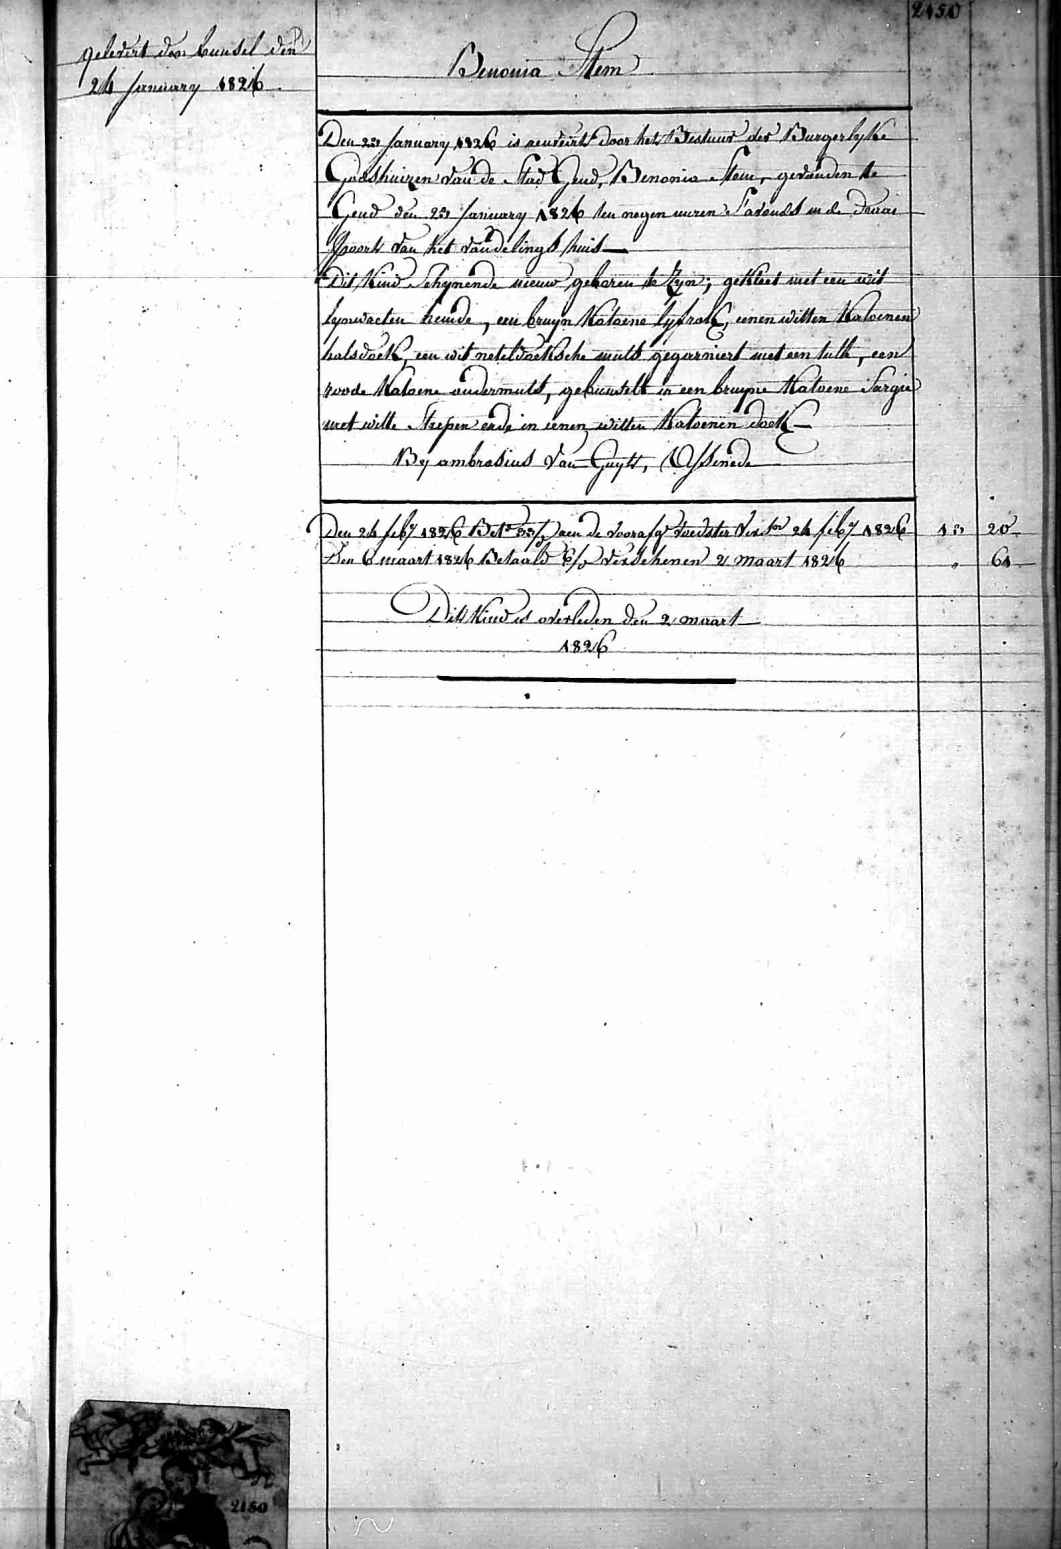 2150
gelevert door bunsel den
24 January 1826.
Benonia Stem
Den 23 January 1826 is aenveirt door het Bestuur der Burgerlyke
Godshuizen van de Stad Gend, Benonia Stem, gevonden te
Gend den 23 January 1826 ten negen uuren s'avonds in de draai
Poorte van het vondelings huis
Dit Kind schynende nieuw geboren te zyn; gekleed met een wit
lynwaeten hemde, een bruyn Katoene lyfrok, eenen witten Katoenen
halsdoek, een wit neteldoeksche muts gegarniert met een tulle, een
roode Katoene ondermuts, gebunselt in een bruyne Katoene Sargie
met witte Strepen ende in eenen witten Katoenen doek
By ambrosius Van Guyts, Assenede
Den 24 feby 1826 Bet. aen de voorsg. voedster Ver. 24 feby 1826 13 20
Den 6 maart 1826 Betaald verschenen 2 maart 1826 " 61
Dit Kind is overleden den 2 maart
1826
2150